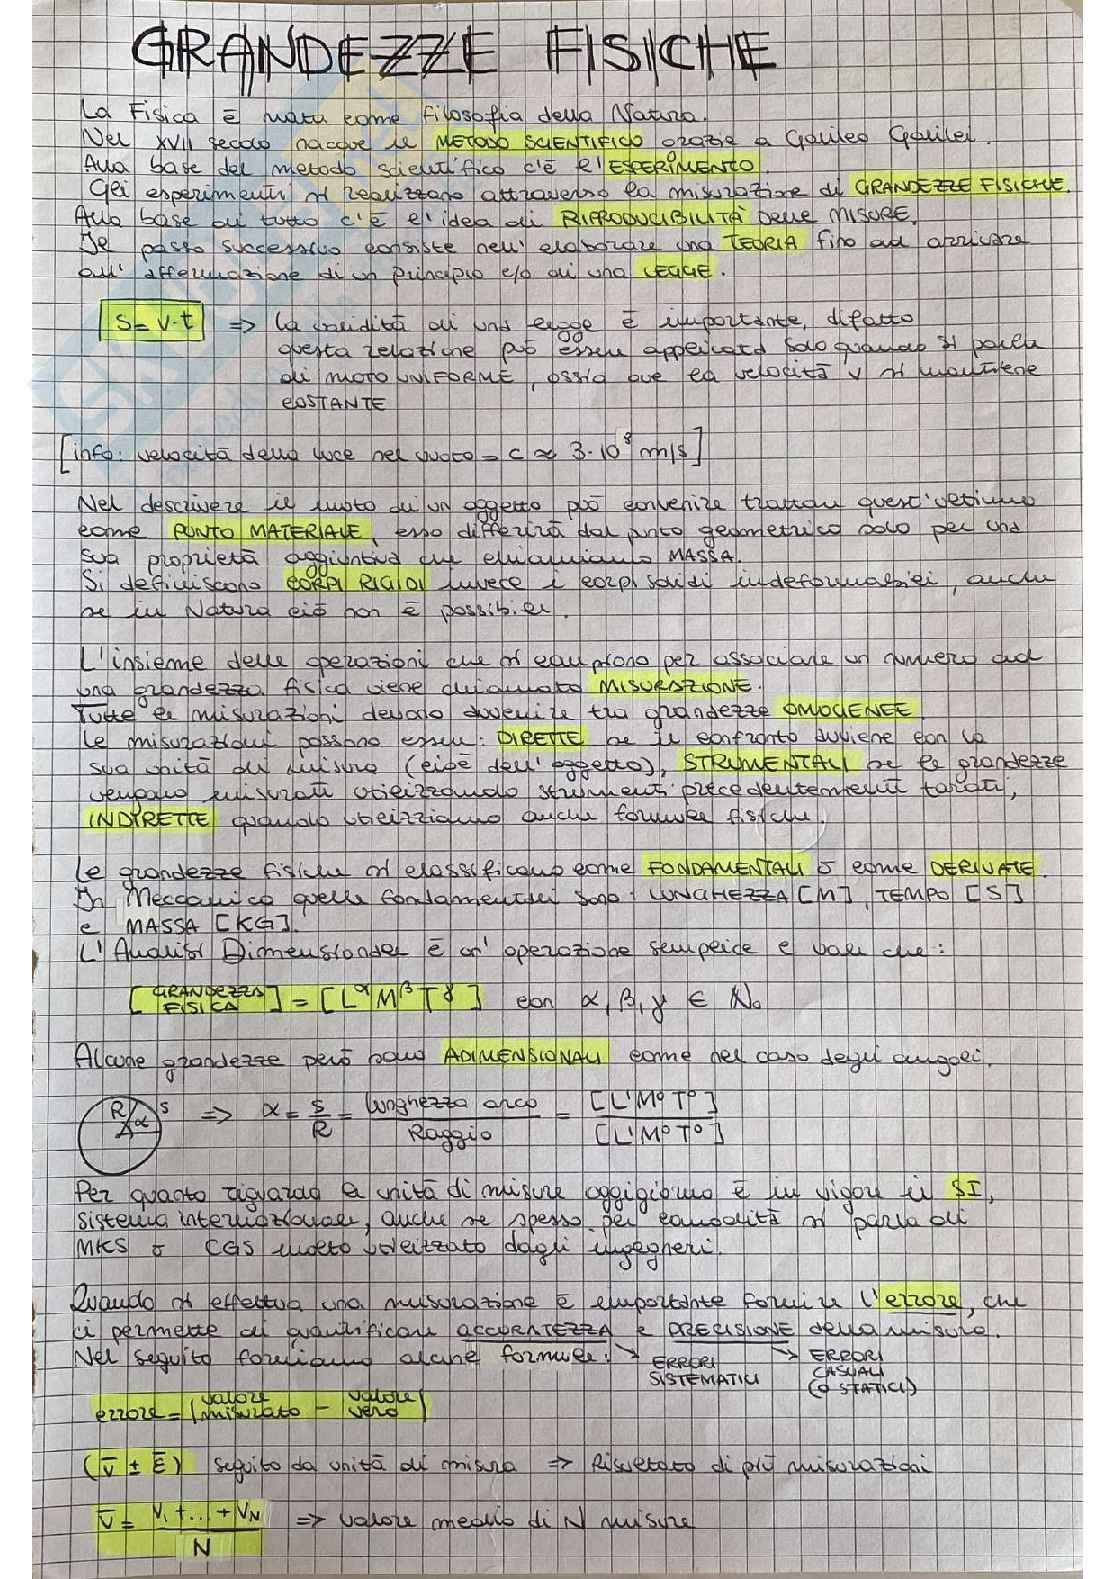 GRANDEZZE FISICHE
La Fisica è nata come filosofia della Natura.
Nel XVII secolo nacque il METODO SCIENTIFICO grazie a Galileo Galilei.
Alla base del metodo scientifico c'è l'ESPERIMENTO.
Gli esperimenti si realizzano attraverso la misurazione di GRANDEZZE FISICHE.
Alla base di tutto c'è l'idea di RIPRODUCIBILITÀ DELLE MISURE.
Il passo successivo consiste nell'elaborare una TEORIA fino ad arrivare
all'affermazione di un principio e/o di una LEGGE.
S = v·t => La validità di una legge è importante, difatto
questa relazione può essere applicata solo quando si parla
di moto UNIFORME, ossia che la velocità v si mantiene
COSTANTE
[info: velocità della luce nel vuoto = c ≈ 3·10⁸ m/s]
Nel descrivere il moto di un oggetto può convenire trattare quest'ultimo
come PUNTO MATERIALE, esso differirà dal punto geometrico solo per una
sua proprietà aggiuntiva che chiamiamo MASSA.
Si definiscono CORPI RIGIDI invece i corpi solidi indeformabili, anche
se in Natura ciò non è possibile.
L'insieme delle operazioni che si compiono per associare un numero ad
una grandezza fisica viene chiamato MISURAZIONE.
Tutte le misurazioni devono avvenire tra grandezze OMOGENEE.
Le misurazioni possono essere: DIRETTE se il confronto avviene con la
sua unità di misura (cioè dell'oggetto), STRUMENTALI se le grandezze
vengono misurati utilizzando strumenti precedentemente tarati,
INDIRETTE quando utilizziamo anche formule fisiche.
Le grandezze fisiche si classificano come FONDAMENTALI o come DERIVATE.
In Meccanica quelle fondamentali sono: LUNGHEZZA [M], TEMPO [S]
e MASSA [KG].
L'Analisi Dimensionale è un'operazione semplice e vale che:
[GRANDEZZA FISICA] = [L^α M^β T^γ] con α, β, γ ∈ ℕ₀
Alcune grandezze però sono ADIMENSIONALI come nel caso degli angoli.
R α S => α = S/R = Lunghezza arco/Raggio = [L¹M⁰T⁰]/[L¹M⁰T⁰]
Per quanto riguarda le unità di misure oggigiorno è in vigore il SI,
sistema internazionale, anche se spesso per comodità si parla di
MKS o CGS molto utilizzato dagli ingegneri.
Quando si effettua una misurazione è importante fornire l'errore, che
ci permette di quantificare ACCURATEZZA e PRECISIONE della misura.
Nel seguito forniamo alcune formule: ↘ ERRORI SISTEMATICI ↘ ERRORI CASUALI (O STATICI)
errore = |valore misurato − valore vero|
(v̄ ± ε̄) seguito da unità di misura => Risultato di più misurazioni
v̄ = (V₁ + ... + V_N)/N => valore medio di N misure